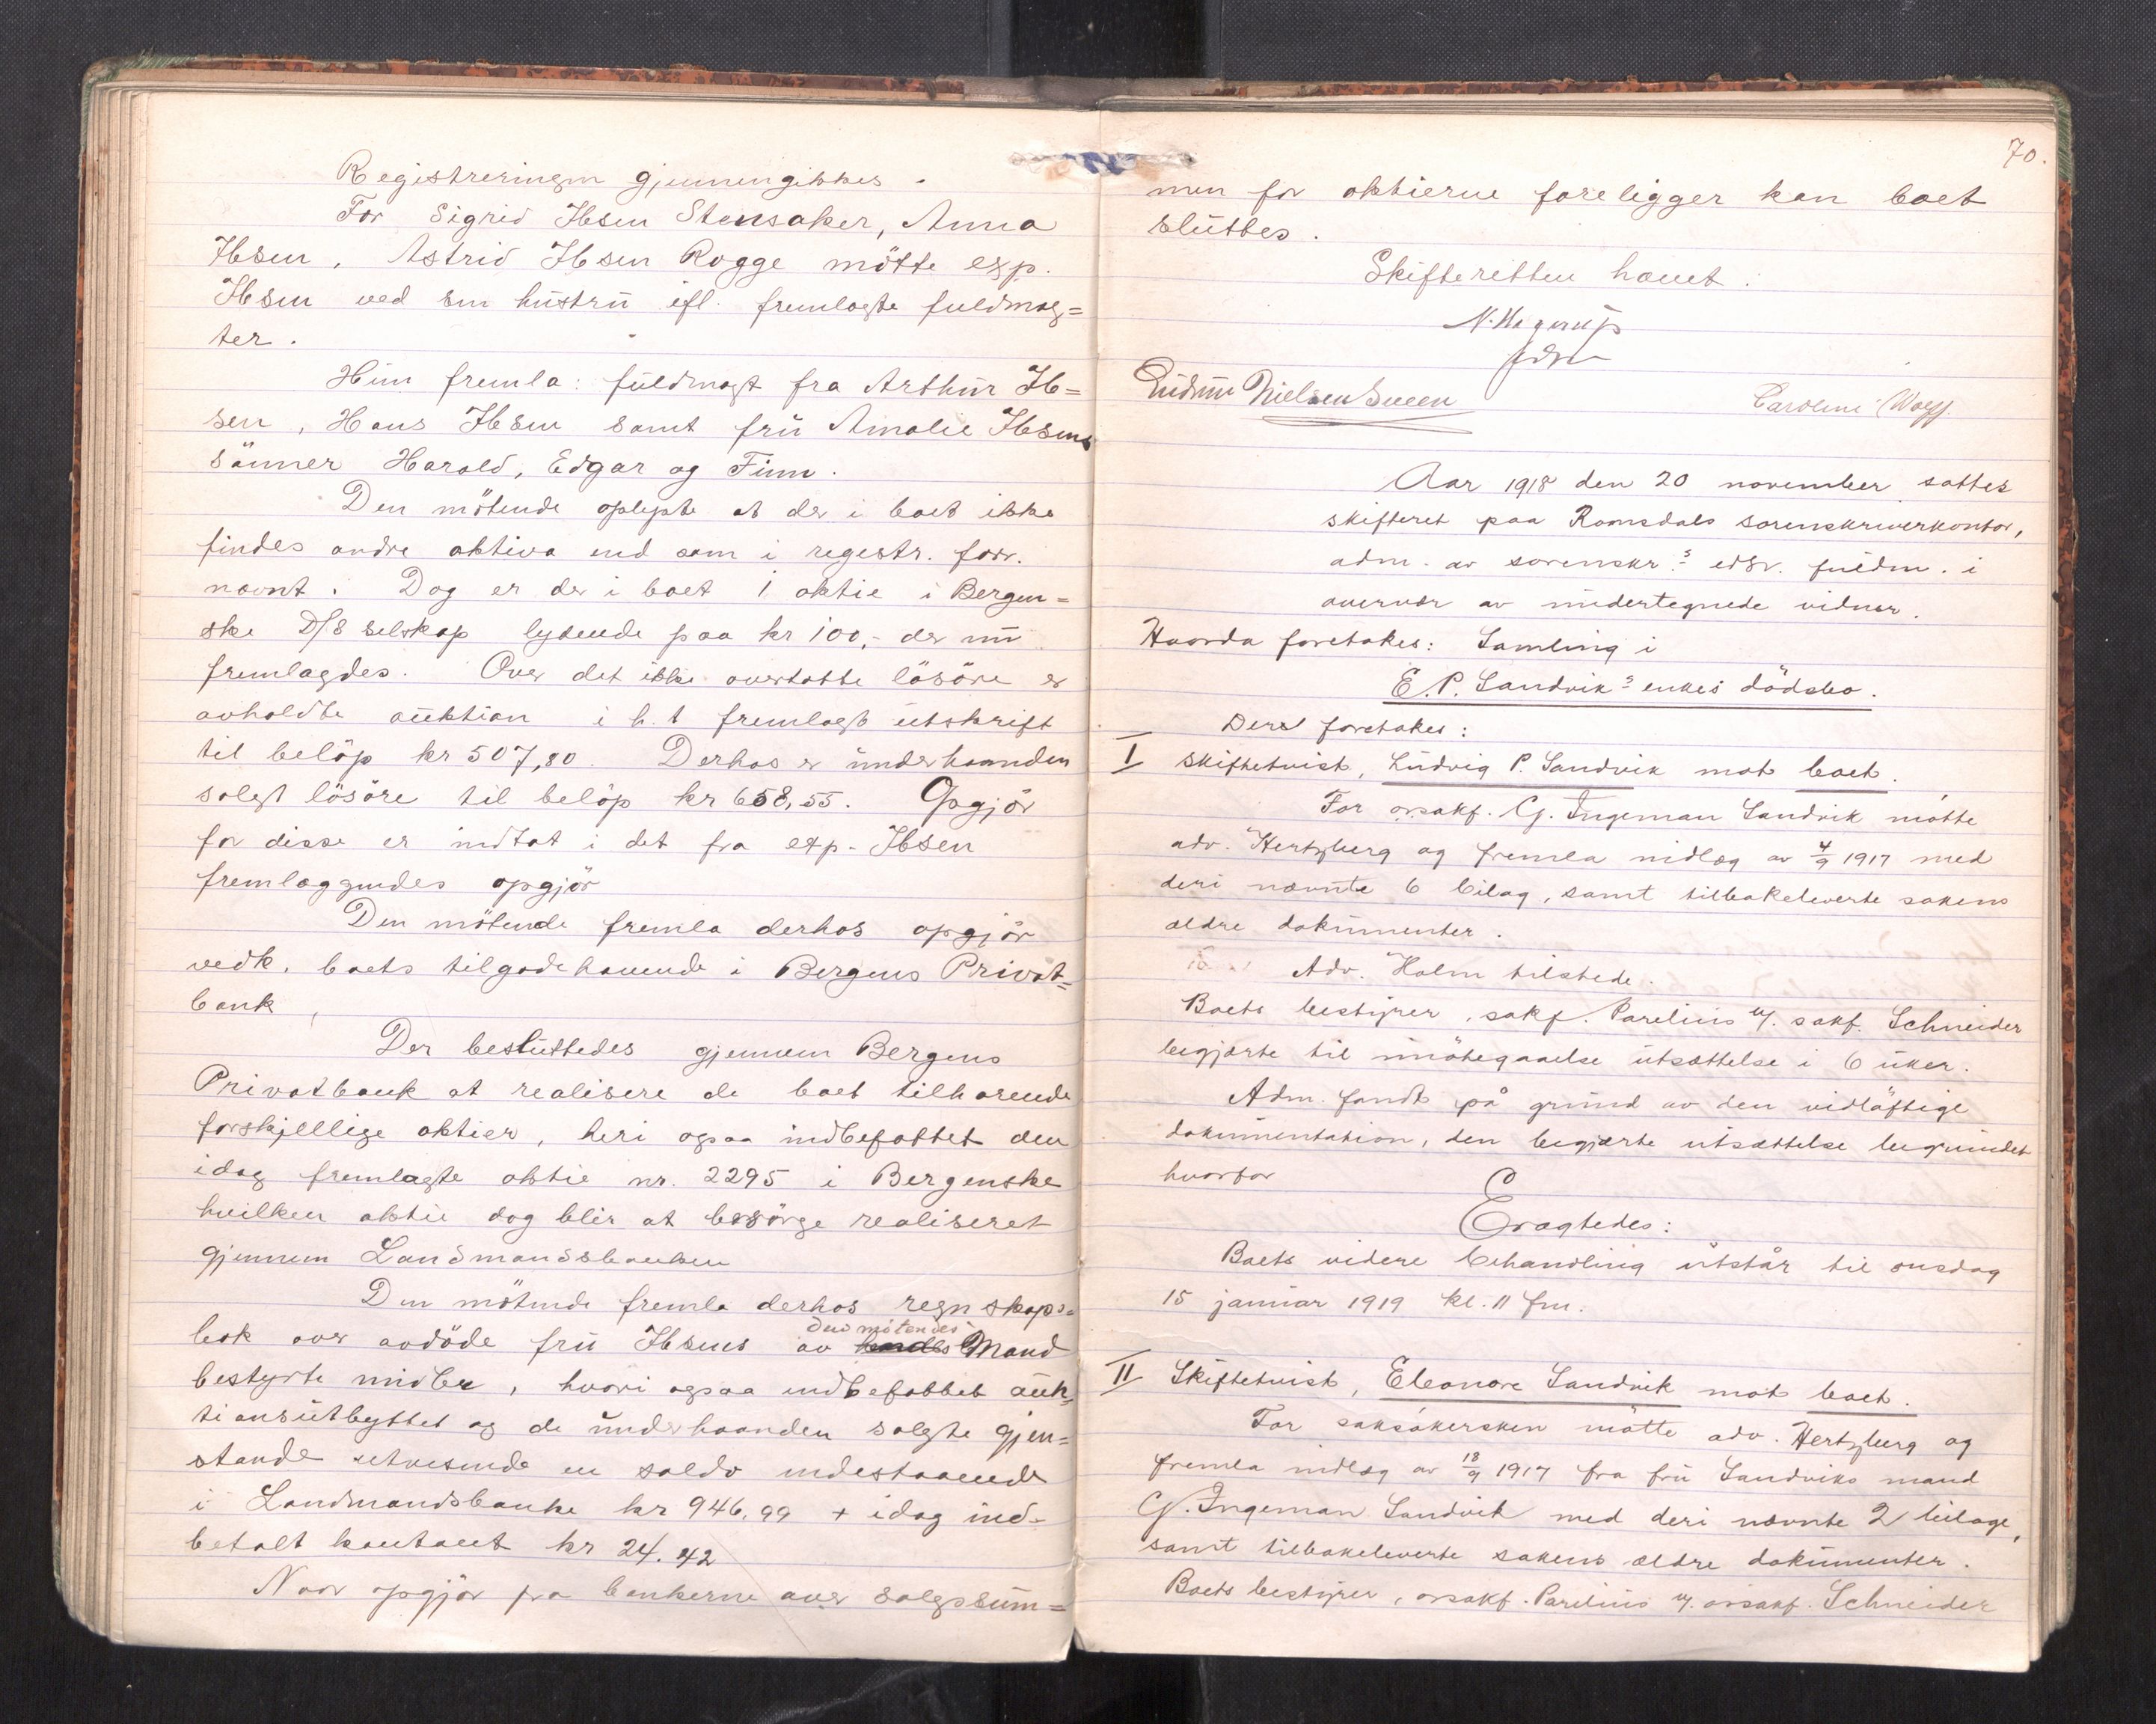 Registreringen gjennemgikkes.
For Sigrid Ibsen Stensaker, Anna
Ibsen, Astrid Ibsen Rogge mötte exp.
Ibsen ved sin hustru ifl. fremlagte fuldmag=
ter.
Hun fremla: fuldmagt fra Arthur Ib=
sen, Hans Ibsen samt fru Amalie Ibsens
sönner Harald, Edgar og Finn.
Den mötende oplyste at der i boet ikke
findes andre aktiva end som i registr. forr.
nævnt. Dog er der i boet 1 aktie i Bergen=
ske D/S selskap lydende paa kr 100,- der nu
fremlagdes. Over det ikke overtatte lösöre er
avholdte auktion i h.t fremlagt utskrift
til belöp kr 507,80. Derhos er underhaanden
solgt lösöre til belöp kr 658,55. Opgjör
for disse er indtat i det fra exp. Ibsen
fremlæggendes opgjör
Den mötende fremla derhos opgjör
vedk. boets tilgodehavende i Bergens Privat=
bank,
Der besluttedes gjennem Bergens
Privatbank at realisere de boet tilhørende
forskjellige aktier, heri ogsaa indbefattet den
idag fremlagte aktie nr. 2295 i Bergenske
hvilken aktie dog blir at besörge realiseret
gjennem Landmandsbanken
Den mötende fremla derhos regnskaps=
bok over avdöde fru Ibsens av hendes Mand
den mötendes
bestyrte midler, hvori ogsaa indbefattet auk=
tionsutbyttet og de underhaanden solgte gjen=
stande utvisende en saldo indestaaende
i Landmandsbanke kr 946,99 + idag ind-
betalt kontant kr 24.42
Naar opgjör fra bankerne over salgssum=
70.
men for aktierne foreligger kan boet
sluttes.
Skifteretten hævet.
N. Hagerup
fdm
Gudrun Nielsen Sveen
Caroline Wolff.
Aar 1918 den 20 november sattes
skifteret paa Romsdals sorenskriverkontor,
adm. av sorenskr.s edsv. fuldm. i
overvær av undertegnede vidner.
Hvorda foretokes: Samling i
E. P. Sandvik's enkes dödsbo.
Der foretokes:
I skiftetvist, Ludvig P. Sandvik mot boet.
For orsakf. G. Ingeman Sandvik mötte
adv. Hertzberg og fremla indlæg av 4/9 1917 med
deri nævnte 6 bilag, samt tilbakeleverte sakens
ældre dokumenter.
Adv. Holm tilstede.
Boets bestyrer, sakf. Parelius v/. sakf. Schneider
begjærte til imötegaaelse utsættelse i 6 uker.
Adm. fandt på grund av den vidlöftige
dokumentation, den begjærte utsættelse begrundet
hvorfor
Eragtedes:
Boets videre behandling utstår til onsdag
15 januar 1919 kl. 11 fm.
II Skiftetvist, Eleonore Sandvik mot boet.
For saksökersken mötte adv. Hertzberg og
fremla indlæg av 18/9 1917 fra fru Sandviks mand
G. Ingeman Sandvik med deri nævnte 2 bilage,
samt tilbakeleverte sakens ældre dokumenter.
Boets bestyrer, orsakf. Parelius v/. orsakf. Schneider